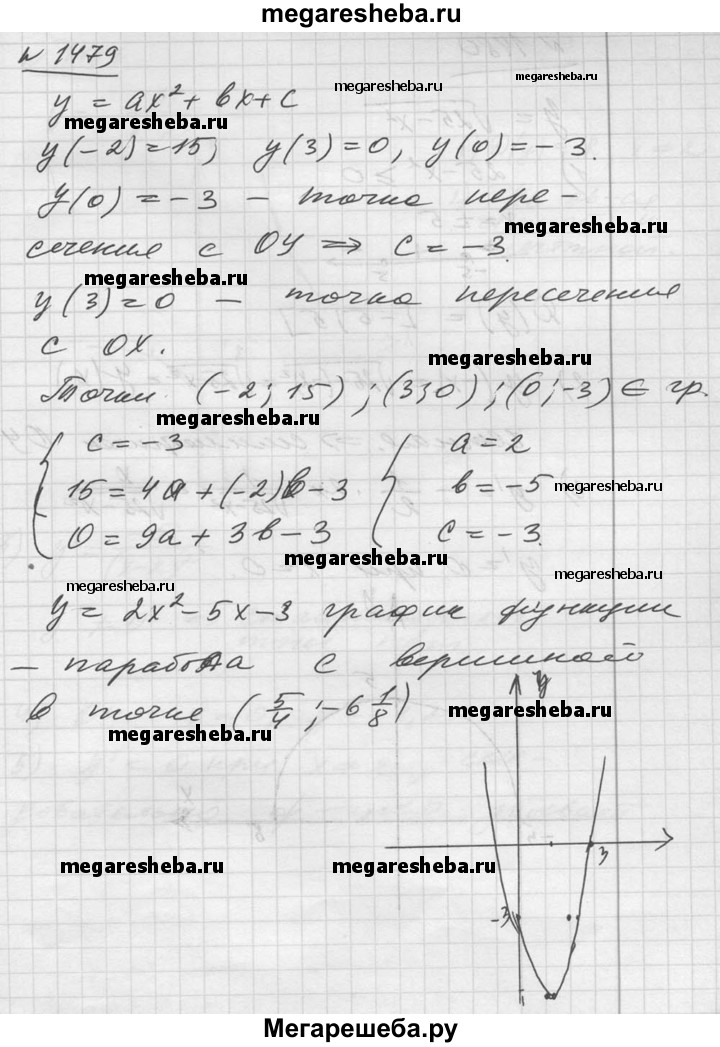 megaresheba.ru
№ 1479
megaresheba.ru
megaresheba.ru
y = ax² + bx + c
megaresheba.ru
y(-2) = 15, y(3) = 0, y(0) = -3.
y(0) = -3 – точка пере-
megaresheba.ru
сечения с OY ⇒ c = -3.
megaresheba.ru
y(3) = 0 – точка пересечения
с OX.
megaresheba.ru
Точки (-2; 15); (3; 0); (0; -3) ∈ гр.
megaresheba.ru
c = -3 a = 2
15 = 4a + (-2)b - 3 b = -5
megaresheba.ru
0 = 9a + 3b - 3 c = -3.
megaresheba.ru
megaresheba.ru
megaresheba.ru
y = 2x² - 5x - 3 график функции
– парабола с вершиной
в точке (5/4; -6 1/8)
y
megaresheba.ru
megaresheba.ru
3
megaresheba.ru
megaresheba.ru
-3
Мегарешеба.ру